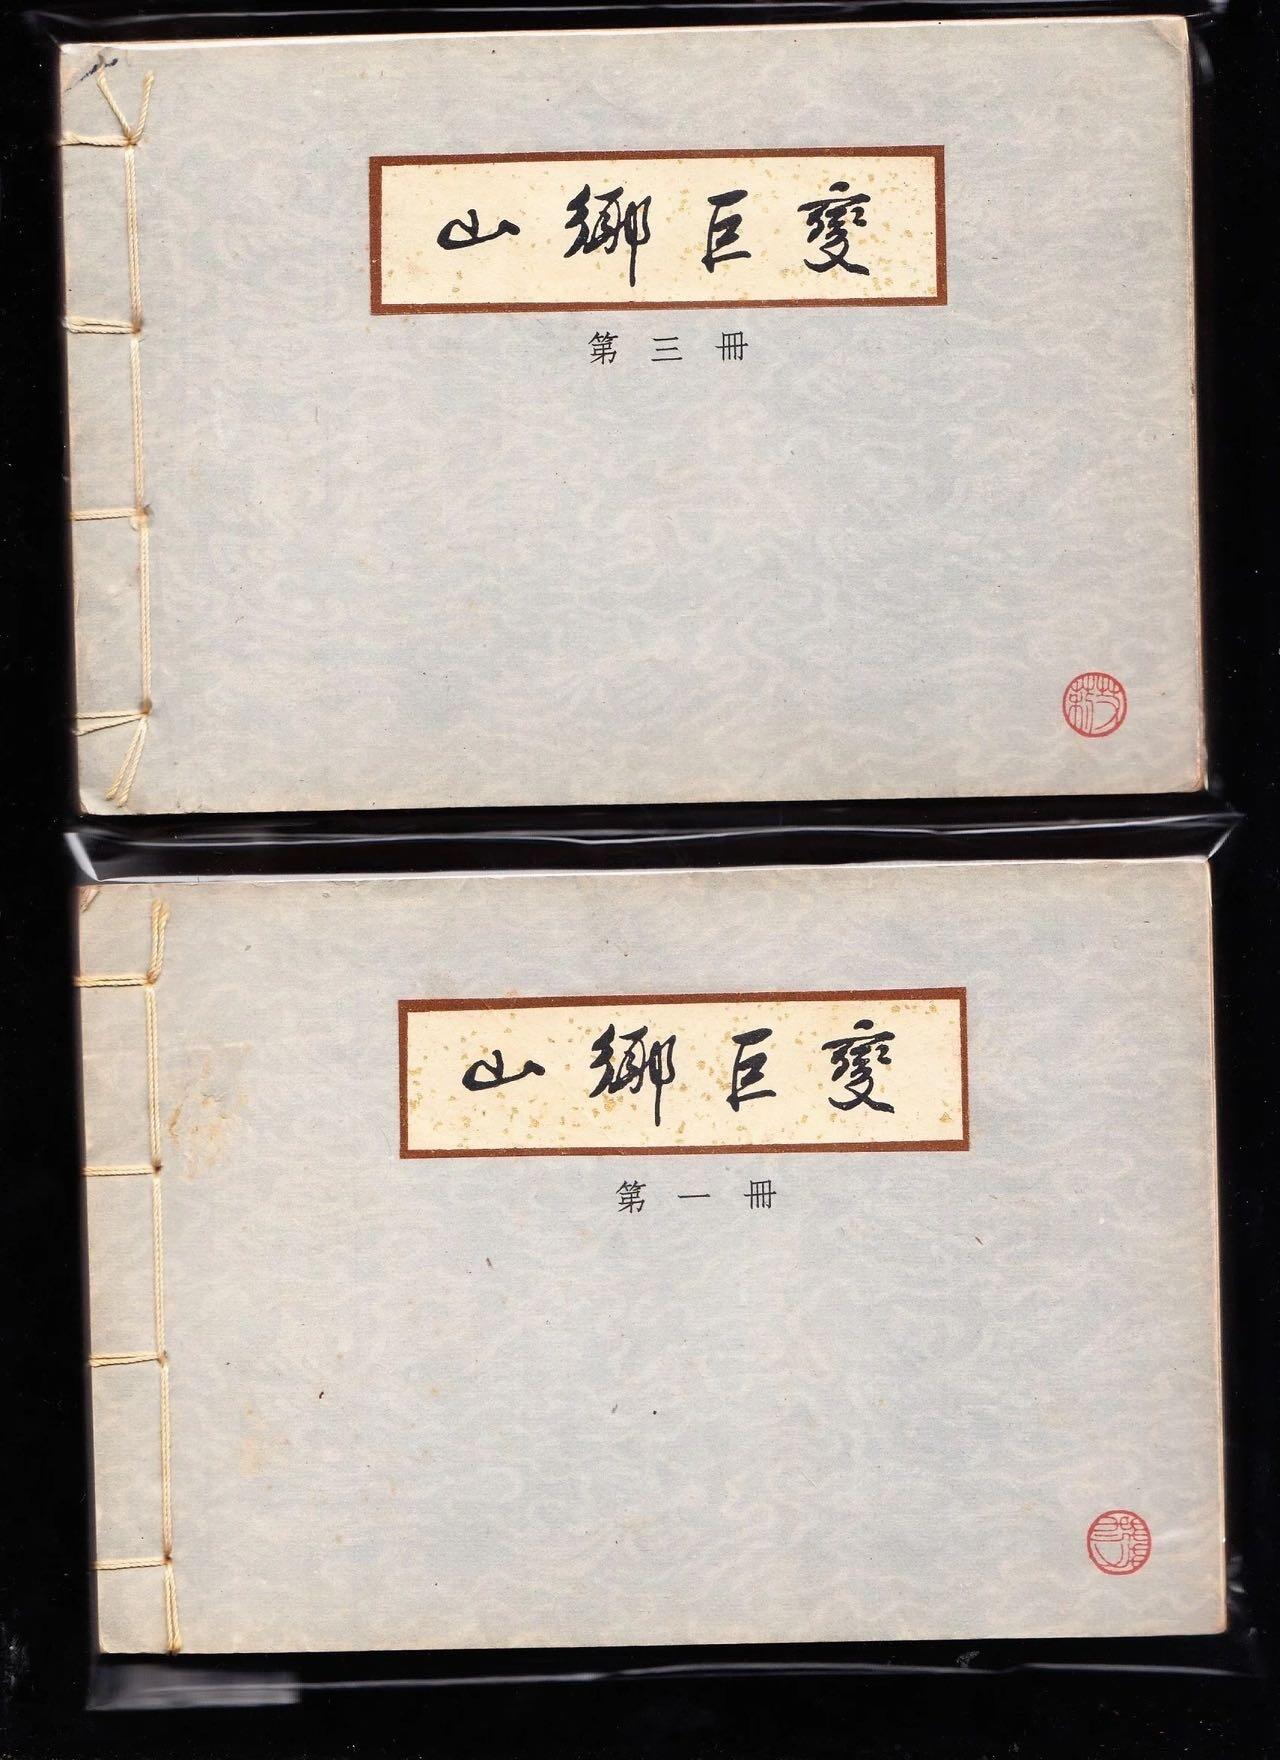 山鄉巨變
第三冊
山鄉巨變
第一冊